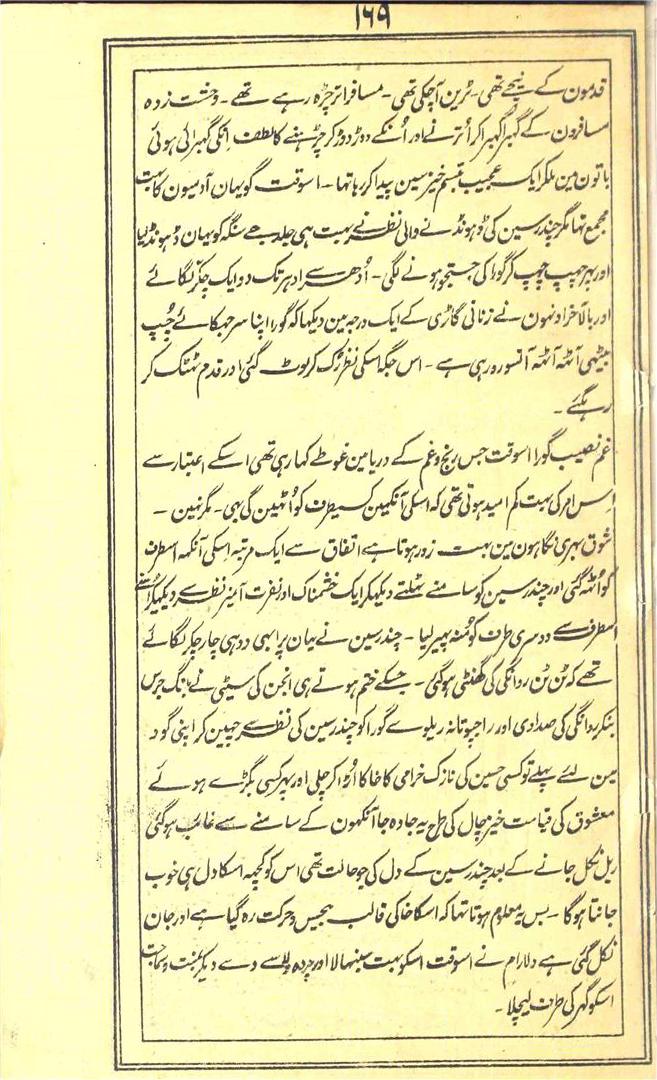 ۱۶۹
قدمون کے نیچے تھی۔ ٹرین آچکی تھی۔ مسافر اتر چڑہ رہے تھے۔ وحشت زدہ
مسافرون کے گہبرا گہبرا کر اُترنے اور اُنکے دوڑ دوڑ کر چڑہنے کا لطف انکی گہبرائی ہوئی
باتون مین ملکر ایک عجیب تبسم خیز سین پیدا کر رہا تہا۔ اسوقت گو یہان آدمیون کا بہت
مجمع تہا مگر چندر سین کی ڈہونڈنے والی نظر نے بہت ہی جلد جے سنگہ کو یہان ڈہونڈ لیا
اور پہر چہپ چہپ کر گورا کی جستجو ہونے لگی۔ اُدھر سے ادہر تک دو ایک چکر لگائے
اور بالآخر اونہون نے زنانی گاڑی کے ایک درجہ مین دیکہا کہ گورا اپنا سر جہکائے چُپ
بیٹہی آٹہہ آٹہہ آنسو رو رہی ہے۔ اس جگہ اسکی نظر رُک کر لوٹ گئی اور قدم ٹہٹک کر
رہگئے۔
غم نصیب گورا اسوقت جس رنج و غم کے دریا مین غوطے کہا رہی تھی اسکے اعتبار سے
اِس امر کی بہت کم امید ہوتی تھی کہ اسکی آنکہین کسیطرف کو اُٹہین گی بہی۔ مگر نہین۔
شوق بہری نگاہون مین بہت زور ہوتا ہے اتفاق سے ایک مرتبہ اسکی آنکہہ اسطرف
کو اُٹہہ گئی اور چندر سین کو سامنے ٹہلتے دیکہکر ایک خشمناک اور نفرت آمیز نظر سے دیکہکر اُسنے
اسطرف سے دوسری طرف کو مُنہ پہیر لیا۔ چندر سین نے یہان پر ابہی دو ہی چار چکر لگائے
تھے کہ ٹن ٹن روانگی کی گھنٹی ہوگئی۔ جسکے ختم ہوتے ہی انجن کی سیٹی نے بانگ جرس
بنکر روانگی کی صدا دی اور راجپوتانہ ریلوے گورا کو چندر سین کی نظر سے چہین کر اپنی گود
مین لئے پہلے تو کسی حسین کی نازک خرامی کا خاکا اُڑا کر چلی اور پہر کسی بگڑے ہوئے
معشوق کی قیامت خیز چال کی طرح یہ جادہ جا آنکہون کے سامنے سے غائب ہوگئی
ریل نکل جانے کے بعد چندر سین کے دل کی جو حالت تھی اس کو کچہہ اسکا دل ہی خوب
جانتا ہوگا۔ بس یہ معلوم ہوتا تہا کہ اسکا خاکی قالب بیحس و حرکت رہ گیا ہے اور جان
نکل گئی ہے دلارام نے اسوقت اسکو بہت سنبہالا اور دے دیکر بمنت و سماجت
اسکو گھر کی طرف لیچلا۔